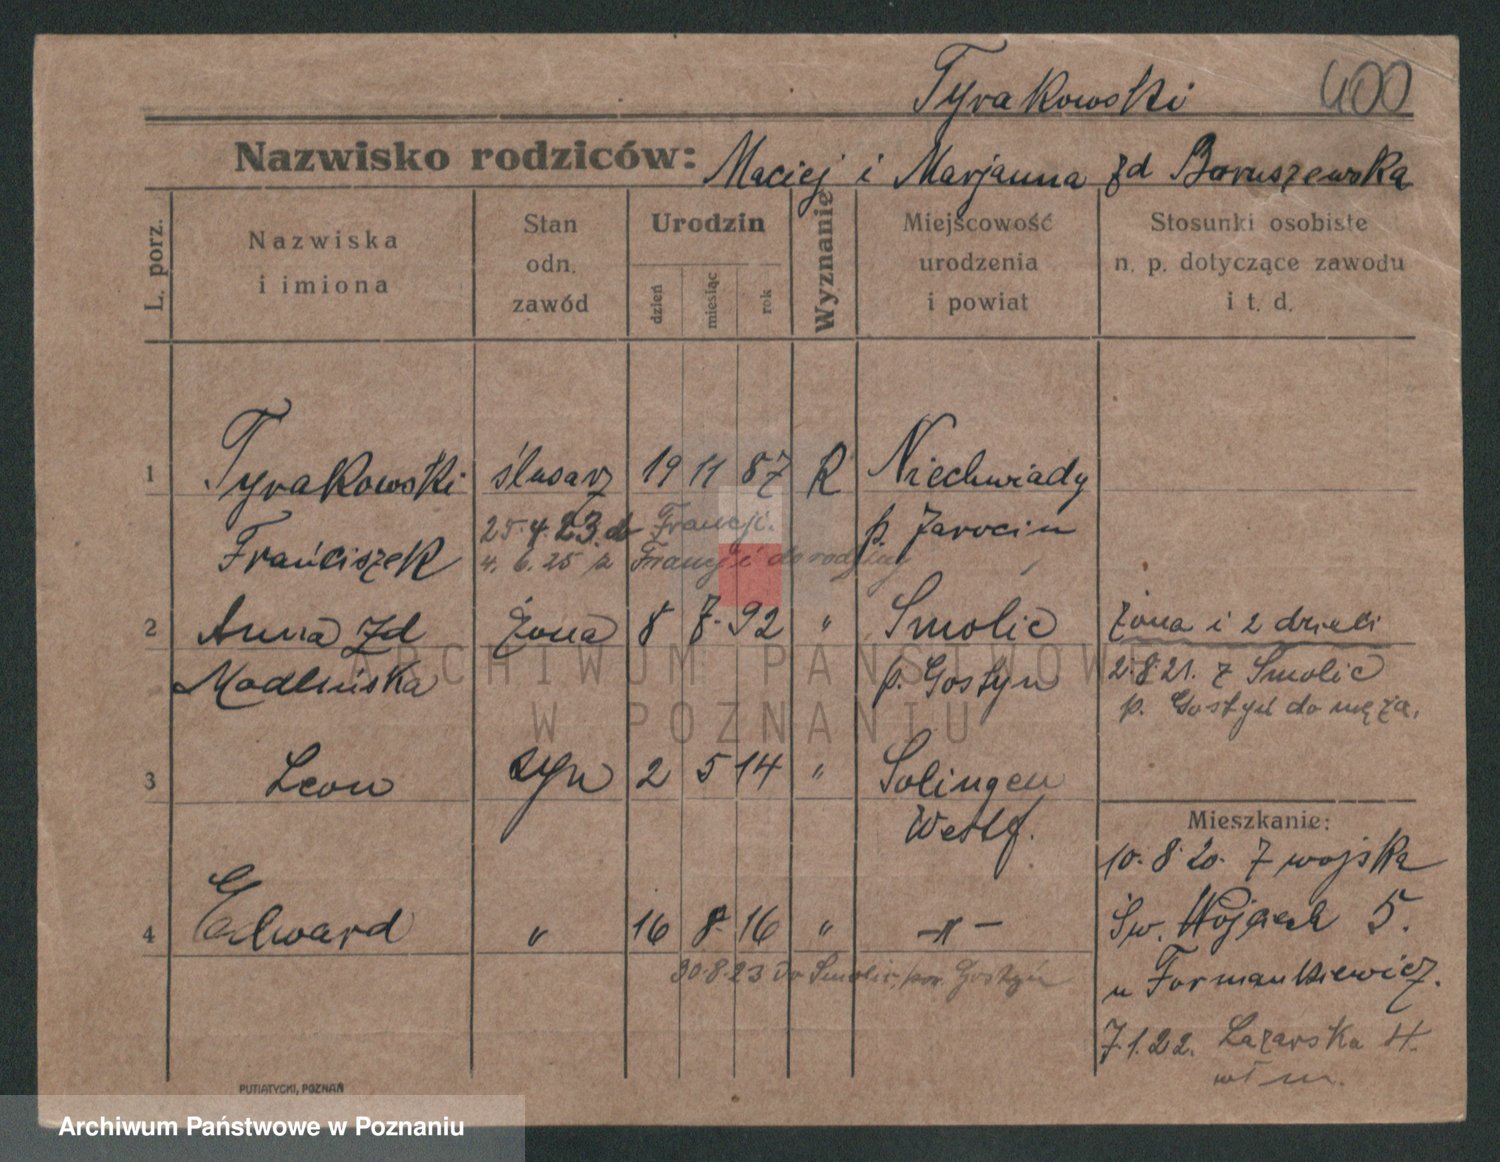 Tyrakowski 400
Nazwisko rodziców: Maciej i Marjanna zd Boruszewska
L. porz.
Nazwiska
i imiona
Stan
odn.
zawód
Urodzin
dzień
miesiąc
rok
Wyznanie
Miejscowość
urodzenia
i powiat
Stosunki osobiste
n. p. dotyczące zawodu
i t. d.
1 Tyrakowski ślusarz 19 11 87 R Niechwiady
Frańciszek p. Jarocin
25.4.23. do Francji.
4.6.25 z Francji do rodziny
2 Anna zd żona 8 7. 92 " Smolic żona i 2 dzieci
Modlińska p. Gostyn 2.8.21. z Smolic
p. Gostyń do męża.
3 Leon syn 2 5 14 " Solingen
Westf.
Mieszkanie:
10.8.20. z wojska
4 Edward " 16 8. 16 " -"- Św. Wojciech 5.
30.8.23 do Smolic, pow. Gostyń
u Formankiewicz.
7.1.22. Łazarska 4.
wł m.
PUTIATYCKI, POZNAŃ
ARCHIWUM PAŃSTWOWE
W POZNANIU
Archiwum Państwowe w Poznaniu